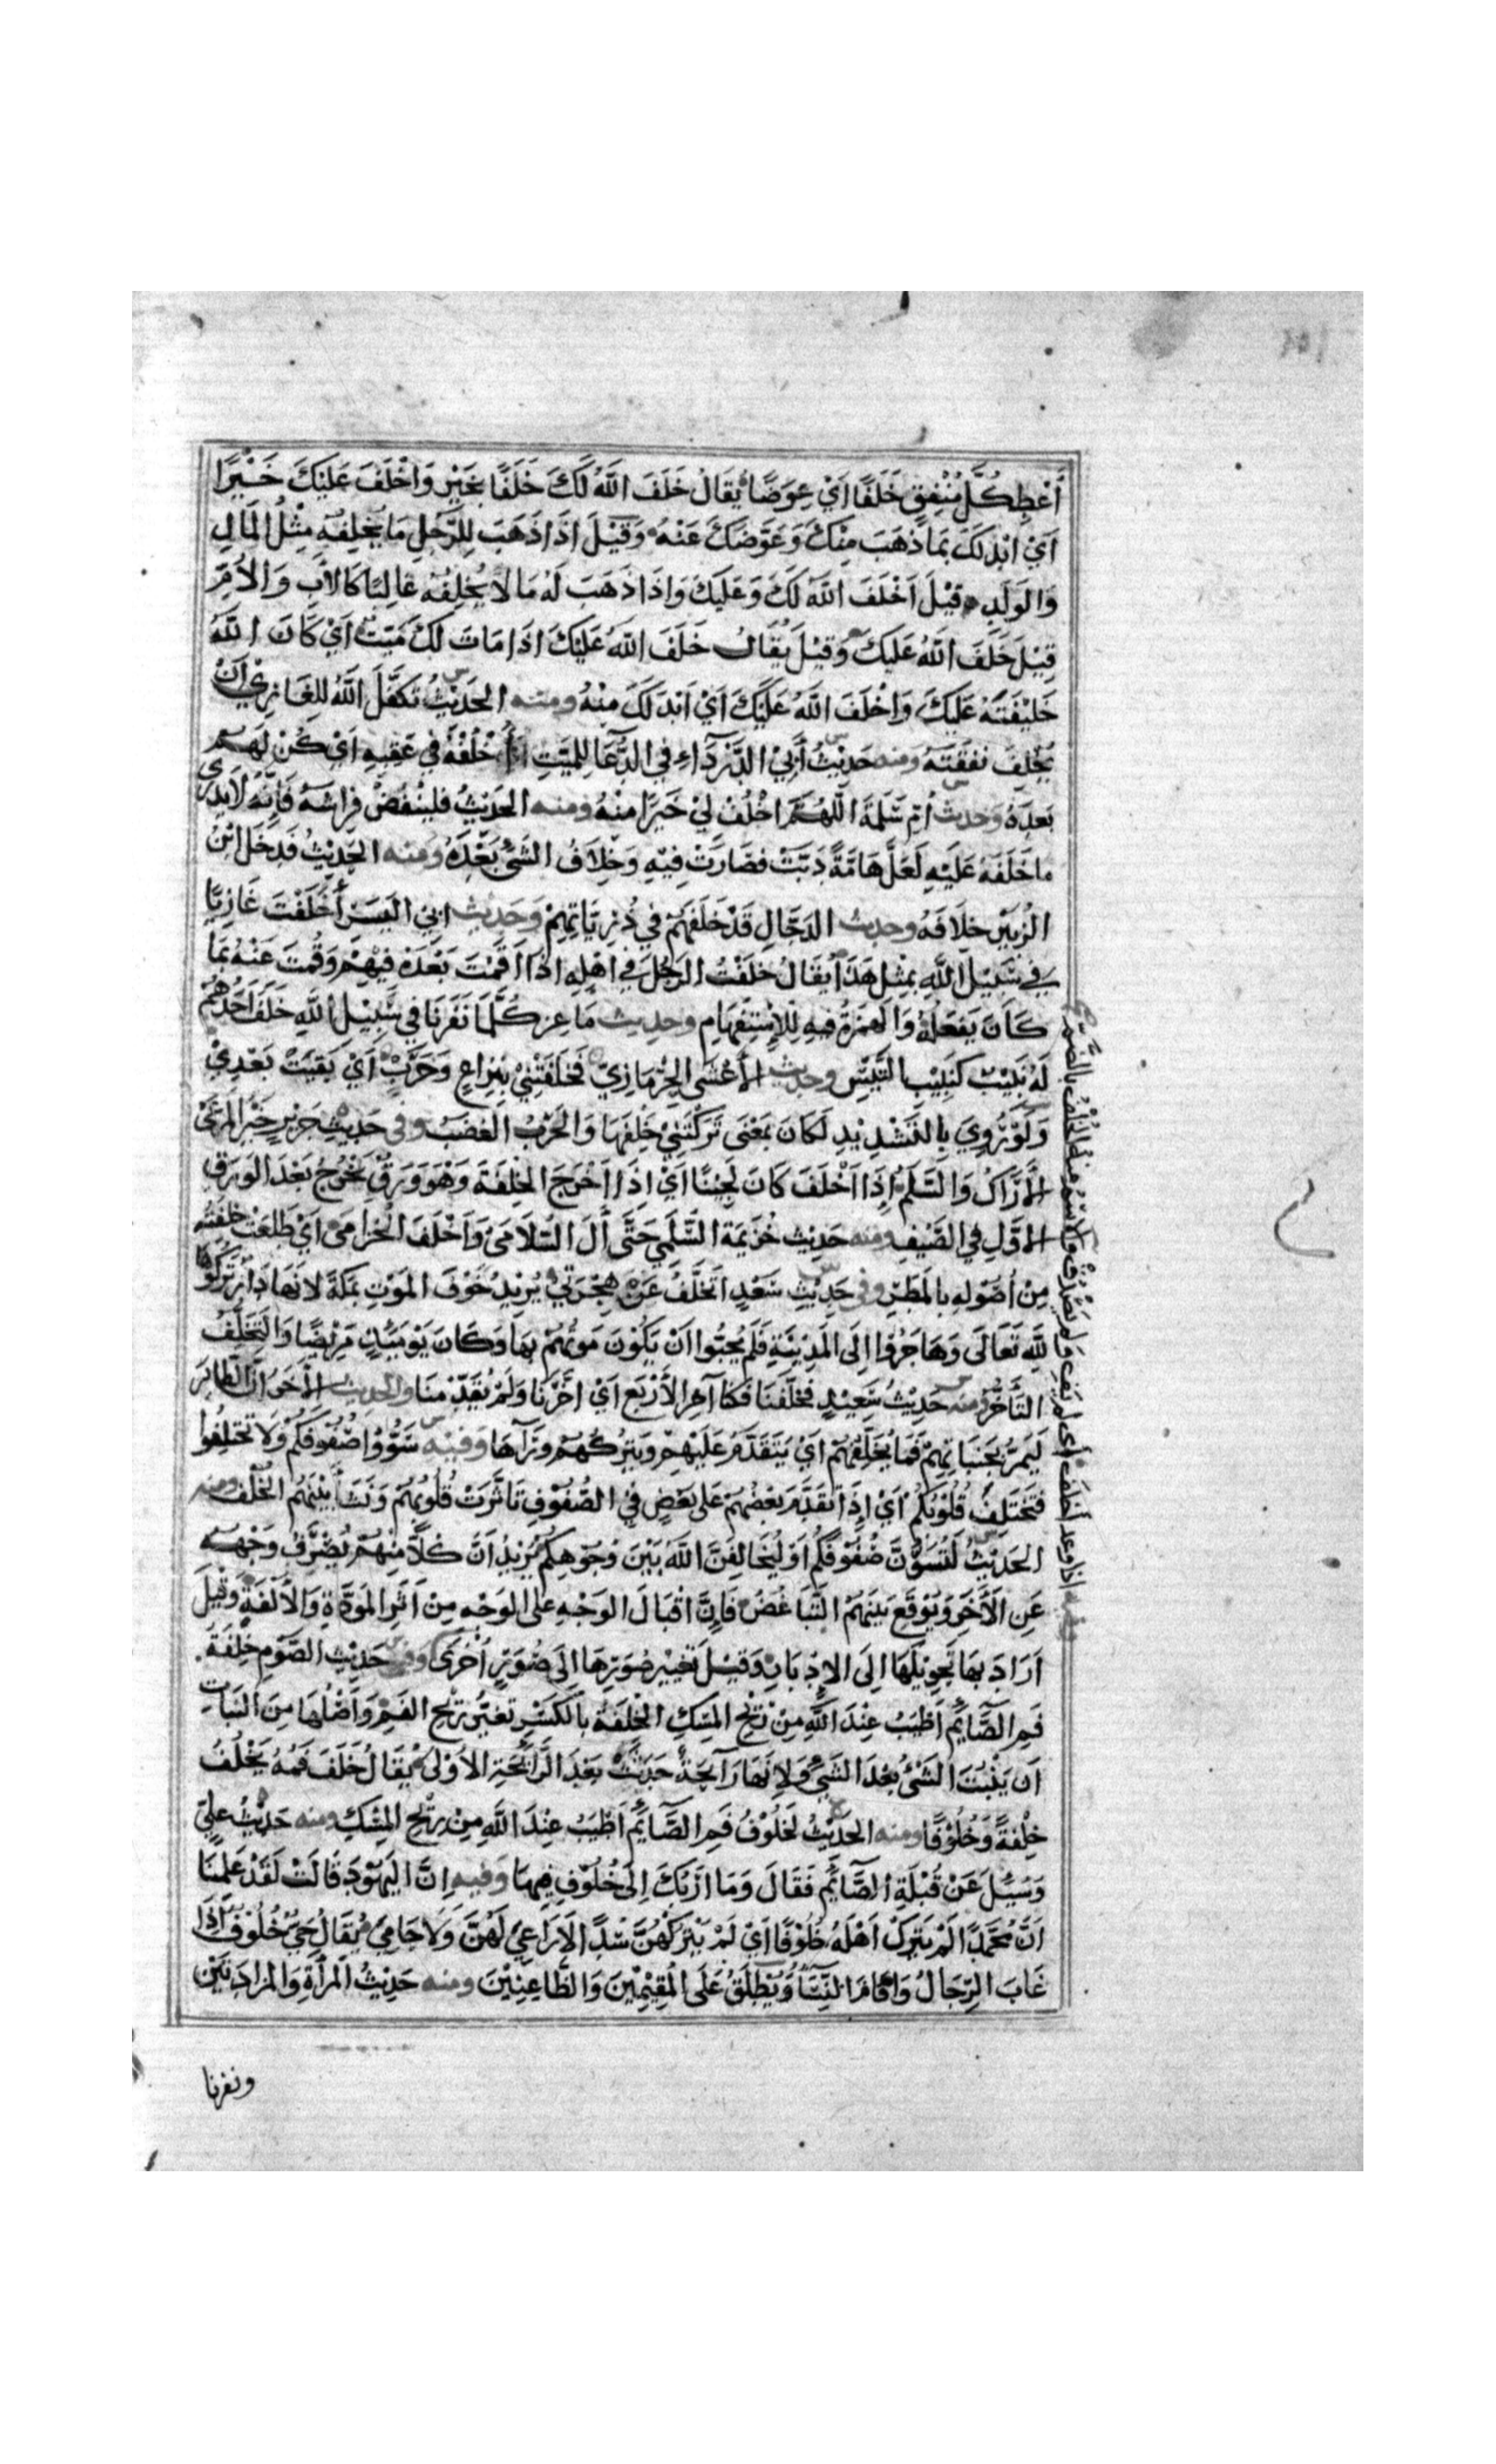 أَعْطِ كُلَّ مُنْفِقٍ خَلَفًا اَيْ عِوَضًا يُقَالُ خَلَفَ اللَّهُ لَكَ خَلَفًا بِخَيْرٍ وَاَخْلَفَ عَلَيْكَ خَيْرًا
اَيْ اَبْدَلَكَ بِمَا ذَهَبَ مِنْكَ وَعَوَّضَكَ عَنْهُ وَقِيْلَ اِذَا ذَهَبَ لِلرَّجُلِ مَا يَخْلِفُهُ مِثْلُ المَالِ
وَالوَلَدِ قِيْلَ اَخْلَفَ اللَّهُ لَكَ وَعَلَيْكَ وَاِذَا ذَهَبَ لَهُ مَا لَا يُخْلِفُهُ غَالِبًا كَالاَبِ وَالاُمِّ
قِيْلَ خَلَفَ اللَّهُ عَلَيْكَ وَقِيْلَ يُقَالُ خَلَفَ اللَّهُ عَلَيْكَ اِذَا مَاتَ لَكَ مَيِّتٌ اَيْ كَانَ اللَّهُ
خَلِيْفَتَهُ عَلَيْكَ وَاَخْلَفَ اللَّهُ عَلَيْكَ اَيْ اَبْدَلَكَ مِنْهُ ومنه الحَدِيْثُ تَكَفَّلَ اللَّهُ لِلغَازِيْ اَنْ
يُخْلِفَ نَفَقَتَهُ ومنه حَدِيْثُ أَبِيْ الدَّرْدَاءِ فِي الدُّعَاءِ لِلمَيِّتِ اُخْلُفْهُ فِي عَقِبِهِ اَيْ كُنْ لَهُمْ
بَعْدَهُ وَحديث اُمِّ سَلَمَةَ اللَّهُمَّ اخْلُفْ لِيْ خَيْرًا مِنْهُ ومنه الحَدِيْثُ فَلْيَنْفُضْ فِرَاشَهُ فَاِنَّهُ لَا يَدْرِي
مَا خَلَفَهُ عَلَيْهِ لَعَلَّ هَامَّةً دَبَّتْ فَصَارَتْ فِيْهِ وَخِلَافُ الشَّيْءِ بَعْدَهُ ومنه الحَدِيْثُ فَدَخَلَ ابْنُ
الزُّبَيْرِ خِلَافَهُ وحديث الدَّجَّالِ قَدْ خَلَفَهُمْ فِي ذُرِّيَّاتِهِمْ وَحَدِيْث ابي اليَسَرِ أَخَلَفْتَ غَازِيًا
فِي سَبِيْلِ اللَّهِ بِمِثْلِ هَذَا يُقَالُ خَلَفْتُ الرَّجُلَ فِي اَهْلِهِ اِذَا اَقَمْتَ بَعْدَهُ فِيْهِمْ وَقُمْتَ عَنْهُ بِمَا
كَانَ يَفْعَلُهُ وَالهَمْزَةُ فِيهِ لِلْاِسْتِفْهَامِ وحديث مَاعِزٍ كُلَّمَا نَفَرْنَا فِي سَبِيْلِ اللَّهِ خَلَفَ اَحَدُهُمْ
لَهُ نَبِيْبٌ كَنَبِيْبِ التَّيْسِ وحديث الأَعْشَى الحِرْمَازِيْ فَخَلَفَتْنِيْ بِنِزَاعٍ وَحَرَبْ اَيْ بَقِيَتْ بَعْدِيْ
وَلَوْ رُوِيَ بِالتَّشْدِيْدِ لَكَانَ بِمَعْنَى تَرَكَتْنِيْ خَلْفَهَا وَالحَرْبُ الغَضَبُ وفي حَدِيْثِ جَرِيْرٍ خَيْرُ المَرْعَى
الأَرَاكُ وَالسَّلَمُ اِذَا اَخْلَفَ كَانَ لَجِيْنًا اَيْ اِذَا اَخْرَجَ الخِلْفَةَ وَهُوَ وَرَقٌ يَخْرُجُ بَعْدَ الوَرَقِ
الأَوَّلِ فِي الصَّيْفِ ومنه حَدِيْث خُزَيْمَةَ السُّلَمِيِّ حَتَّى آلَ السُّلَامَى وَاَخْلَفَ الخُزَامَى اَيْ طَلَعَتْ خِلْفَتُهُ
مِنْ اُصُوْلِهِ بِالمَطَرِ وفي حَدِيْثِ سَعْدٍ اَتَخَلَّفُ عَنْ هِجْرَتِيْ يُرِيْدُ خَوْفَ المَوْتِ بِمَكَّةَ لِاَنَّهَا دَارٌ تَرَكُوْهَا
لِلَّهِ تَعَالَى وَهَاجَرُوا اِلَى المَدِيْنَةِ فَلَمْ يُحِبُّوا اَنْ يَكُوْنَ مَوْتُهُمْ بِهَا وَكَانَ يَوْمَئِذٍ مَرِيْضًا وَالتَّخَلُّفُ
التَّأَخُّرُ ومنه حَدِيْثُ سَعِيْدٍ فَخَلَّفَنَا فَكُنَّا آخِرَ الأَرْبَعِ اَيْ اَخَّرَنَا وَلَمْ يُقَدِّمْنَا والحديث الأَخَرُ اَنَّ الطَّائِرَ
لَيَمُرُّ بِجَنَبَاتِهِمْ فَمَا يُخَلِّفُهُمْ اَيْ يَتَقَدَّمُ عَلَيْهِمْ وَيَتْرُكُهُمْ وَرَآءَهَا وَفِيْهِ سَوُّوْا صُفُوْفَكُمْ وَلَا تَخْتَلِفُوا
فَتَخْتَلِفَ قُلُوْبُكُمْ اَيْ اِذَا تَقَدَّمَ بَعْضُهُمْ عَلَى بَعْضٍ فِي الصُّفُوْفِ تَأَثَّرَتْ قُلُوْبُهُمْ وَنَشَأَ بَيْنَهُمُ الخُلْفُ ومنه
الحَدِيْثُ لَتُسَوُّنَّ صُفُوْفَكُمْ اَوْ لَيُخَالِفَنَّ اللَّهُ بَيْنَ وُجُوْهِكُمْ يُرِيْدُ اَنَّ كُلًّا مِنْهُمْ يُصْرَفُ وَجْهُهُ
عَنِ الأَخَرِ وَيُوْقَعُ بَيْنَهُمُ التَّبَاغُضُ فَاِنَّ اِقْبَالَ الوَجْهِ عَلَى الوَجْهِ مِنْ اَثَرِ المَوَدَّةِ وَالأُلْفَةِ وَقِيْلَ
اَرَادَ بِهَا تَحْوِيْلَهَا اِلَى الاِدْبَارِ وَقِيْلَ تَغْيِيْرَ صُوَرِهَا اِلَى صُوَرٍ اُخْرَى وفي حَدِيْثِ الصَّوْمِ خِلْفَةُ
فَمِ الصَّائِمِ اَطْيَبُ عِنْدَ اللَّهِ مِنْ رِيْحِ المِسْكِ الخِلْفَةُ بِالكَسْرِ تَغَيُّرُ رِيْحِ الفَمِ وَاَصْلُهَا مِنَ النَّبَاتِ
اَنْ يَنْبُتَ الشَّيْءُ بَعْدَ الشَّيْءِ وَلِاَنَّهَا رَآئِحَةٌ حَدَثَتْ بَعْدَ الرَّائِحَةِ الأُوْلَى يُقَالُ خَلَفَ فَمُهُ يَخْلُفُ
خِلْفَةً وَخُلُوْفًا ومنه الحَدِيْثُ لَخُلُوْفُ فَمِ الصَّائِمِ اَطْيَبُ عِنْدَ اللَّهِ مِنْ رِيْحِ المِسْكِ ومنه حَدِيْثُ عَلِيٍّ
وَسُئِلَ عَنْ قُبْلَةِ الصَّائِمِ فَقَالَ وَمَا اَرَبُكَ اِلَى خُلُوْفِ فِيْهَا وَفيه اِنَّ اليَهُوْدَ قَالَتْ لَقَدْ عَلِمْنَا
اَنَّ مُحَمَّدًا لَمْ يَتْرُكْ اَهْلَهُ خُلُوْفًا اَيْ لَمْ يَتْرُكْهُنَّ سُدًى لَا رَاعِيَ لَهُنَّ وَلَا حَامِيَ يُقَالُ حَيٌّ خُلُوْفٌ اِذَا
غَابَ الرِّجَالُ وَاَقَامَ النِّسَآءُ وَيُطْلَقُ عَلَى المُقِيْمِيْنَ وَالظَّاعِنِيْنَ ومنه حَدِيْثُ المَرْأَةِ وَالمَزَادَتَيْنِ
ونفرنا
اذا وعد اخلف اي لم يف ولم يصدق والاسم منه الخُلْفُ بالضم